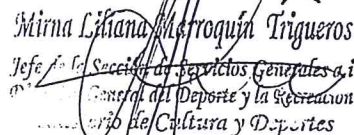 Mirna Liliana Marroquín Trigueros
Jefe de la Sección de Servicios Generales a.i
General del Deporte y la Recreación
Cultura y Deportes